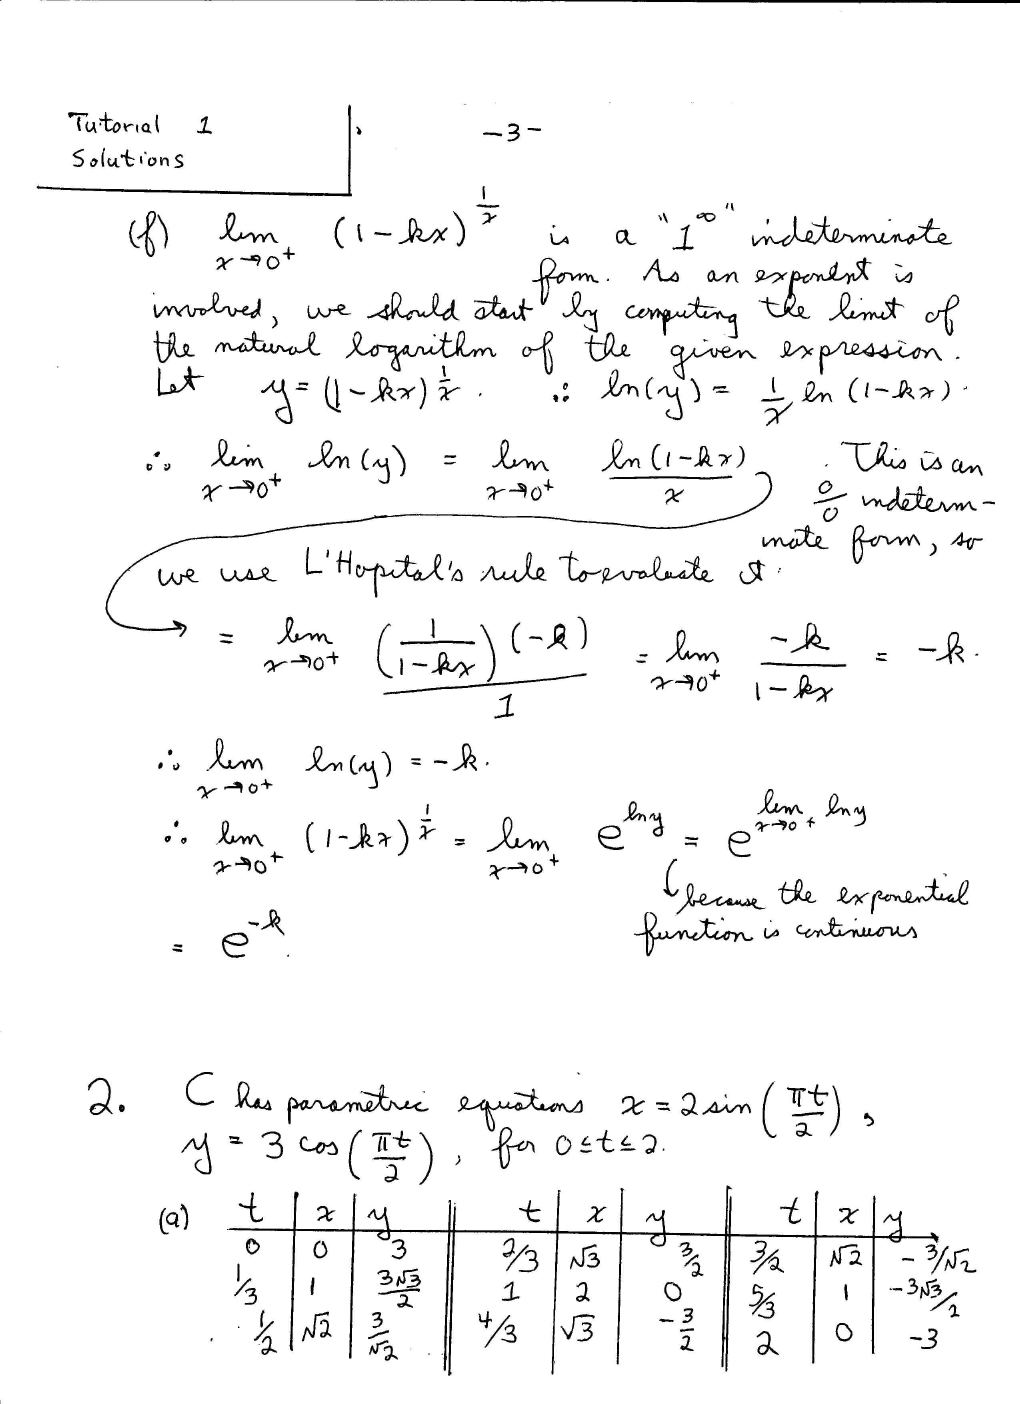 Tutorial 1
Solutions
-3-
(f) lim x→0+ (1-kx)^(1/x) is a "1^∞" indeterminate
form. As an exponent is
involved, we should start by computing the limit of
the natural logarithm of the given expression.
Let y = (1-kx)^(1/x). ∴ ln(y) = 1/x ln(1-kx).
∴ lim x→0+ ln(y) = lim x→0+ ln(1-kx)/x. This is an
0/0 indeterm-
inate form, so
we use L'Hopital's rule to evaluate it.
= lim x→0+ (1/(1-kx))(-k)/1 = lim x→0+ -k/(1-kx) = -k.
∴ lim x→0+ ln(y) = -k.
∴ lim x→0+ (1-kx)^(1/x) = lim x→0+ e^(ln y) = e^(lim x→0+ ln y)
because the exponential
function is continuous
= e^(-k).
2. C has parametric equations x = 2 sin(πt/2),
y = 3 cos(πt/2), for 0≤t≤2.
(a) t | x | y || t | x | y || t | x | y
0 | 0 | 3 || 2/3 | √3 | 3/2 || 3/2 | √2 | -3/√2
1/3 | 1 | 3√3/2 || 1 | 2 | 0 || 5/3 | 1 | -3√3/2
1/2 | √2 | 3/√2 || 4/3 | √3 | -3/2 || 2 | 0 | -3